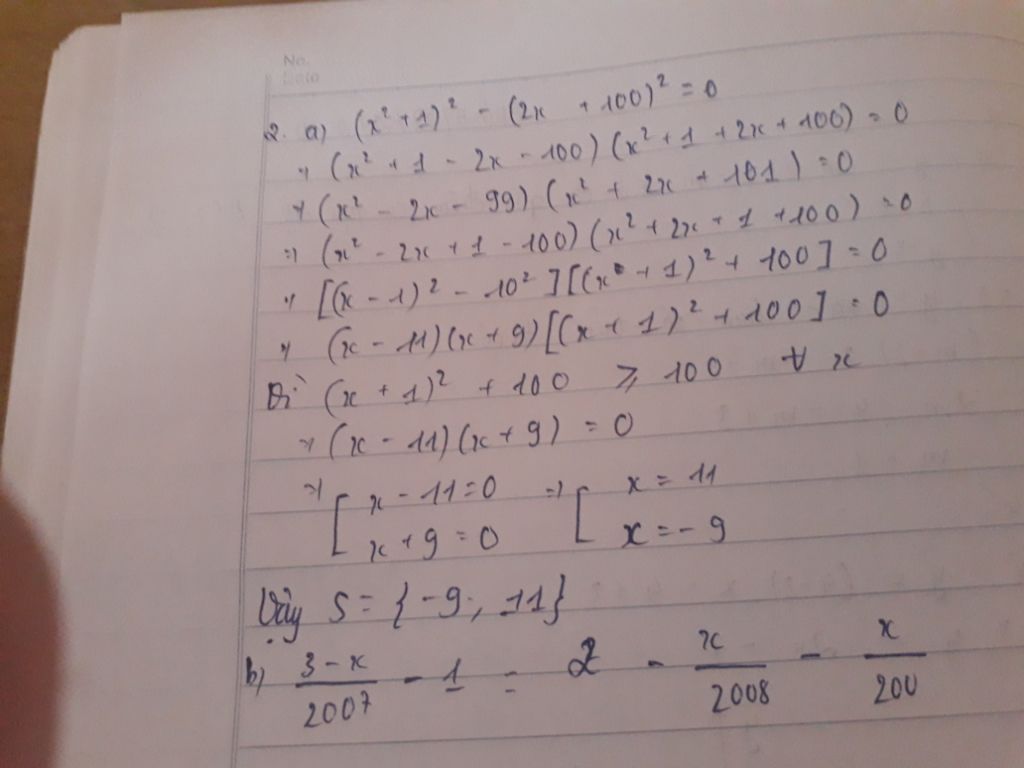 No.
Date
2. a) (x² + 1)² - (2x + 100)² = 0
=> (x² + 1 - 2x - 100)(x² + 1 + 2x + 100) = 0
=> (x² - 2x - 99)(x² + 2x + 101) = 0
=> (x² - 2x + 1 - 100)(x² + 2x + 1 + 100) = 0
=> [(x - 1)² - 10²][(x + 1)² + 100] = 0
=> (x - 11)(x + 9)[(x + 1)² + 100] = 0
Vì (x + 1)² + 100 ⩾ 100 ∀ x
=> (x - 11)(x + 9) = 0
=> [ x - 11 = 0 => [ x = 11
x + 9 = 0 x = - 9
Vậy S = {-9, 11}
b) 3 - x / 2007 - 1 = 2 - x / 2008 - x / 200